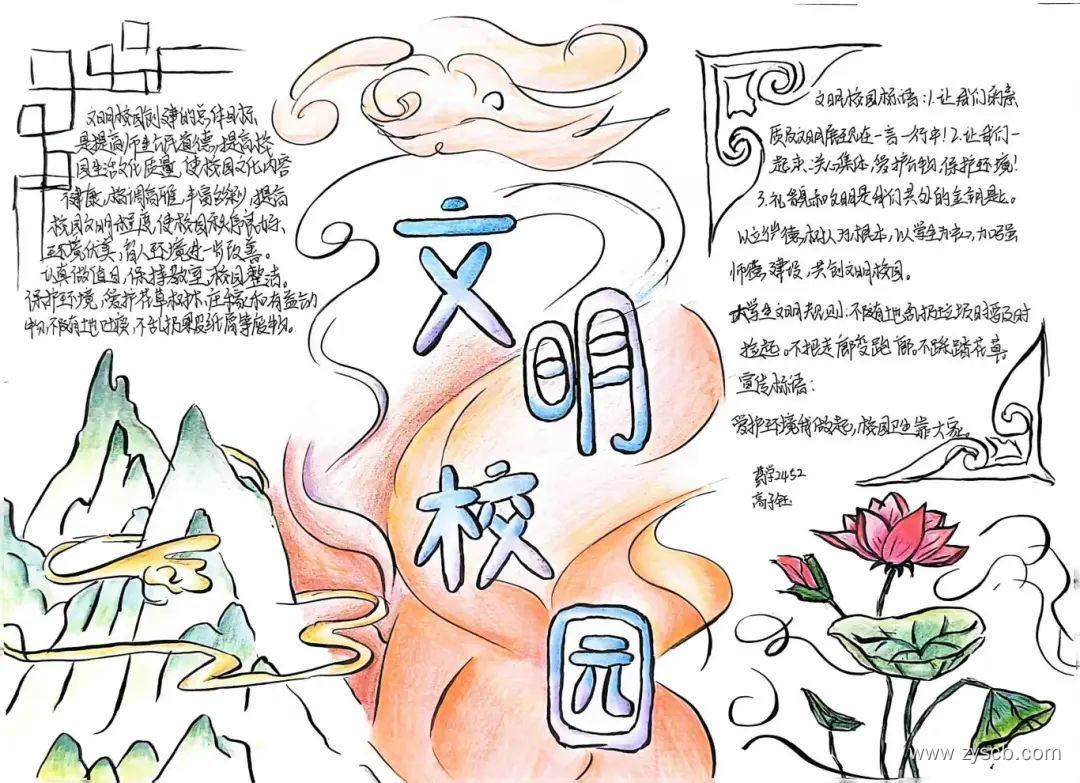 文明校园创建的总体目标
是提高师生公民道德,提高校
园生活文化质量,使校园文化内容
健康,格调高雅,丰富多彩,提高
校园文明程度,使校园秩序良好、
环境优美,育人环境进一步改善。
认真做值日,保持教室、校园整洁。
保护环境,爱护花草树木,庄稼和有益动
物,不随地吐痰,不乱扔果皮纸屑等废物。
文明校园
文明校园标语:1.让我们的素
质及文明展现在一言一行中!2.让我们一
起来:关心集体,爱护公物,保护环境!
3.礼貌和文明是我们共处的金钥匙。
以立德树人为根本,以学生为中心,加强
师德建设,共创文明校园。
大学生文明规则:不随地乱扔垃圾时要及时
捡起。不把走廊变跑廊。不踩踏花草,
宣传标语:
爱护环境我做起,校园卫生靠大家。
药学2452
高子钰
www.zyscb.com